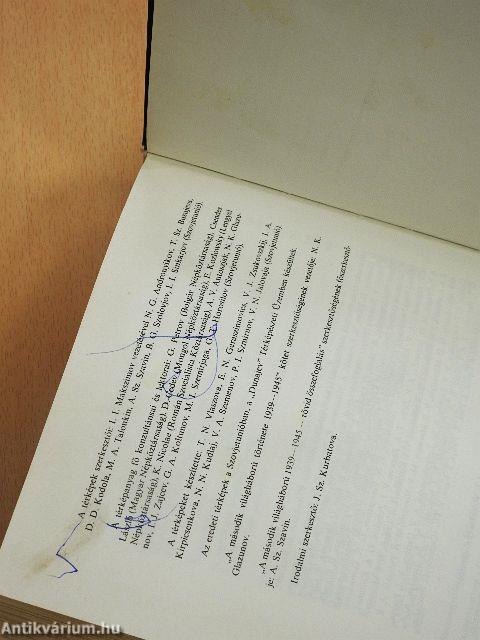 A térképek szerkesztői: I. I. Makszimov vezetésével N. G. Andronyikov, T. Sz. Busujeva,
D. D. Kudola, M. A. Talonkin, A. Sz. Szavin, B. G. Szolovjov, I. I. (Szovjetunió).
A térképanyag fő konzultánsai és lektorai: G. Petrov (Bolgár Népköztársaság), Csendes
László (Magyar Népköztársaság), D. (Mongol Népköztársaság), E. Kozlowsky (Lengyel
Népköztársaság), K. Nicolae (Román Szocialista Köztársaság), A. V. N. K. Glazu-
nov, V. I. Zajcev, G. A. Koltunov, M. I. Szemirjaga, G. T. Horosilov (Szovjetunió).
A térképeket készítette: T. N. Vlaszova, E. N. Geraszimovics, V. J. Zsukovszkij, I. A.
Kirpicsenkova, N. N. Kudlaj, V. A. Szemenov, P. I. Szmirnov, V. N. Jalovaja (Szovjetunió).
Az eredeti térképek a Szovjetunióban, a „Dunajev" Térképészeti Üzemben készültek.
„A második világháború története 1939–1945" kötet szerkesztőségének vezetője: N. K.
Glazunov.
„A második világháború 1939–1945 – rövid összefoglalás" szerkesztőségének főszerkesztő-
je: A. Sz. Szavin.
Irodalmi szerkesztő: J. Sz. Kurbatova.
Antikvárium.hu